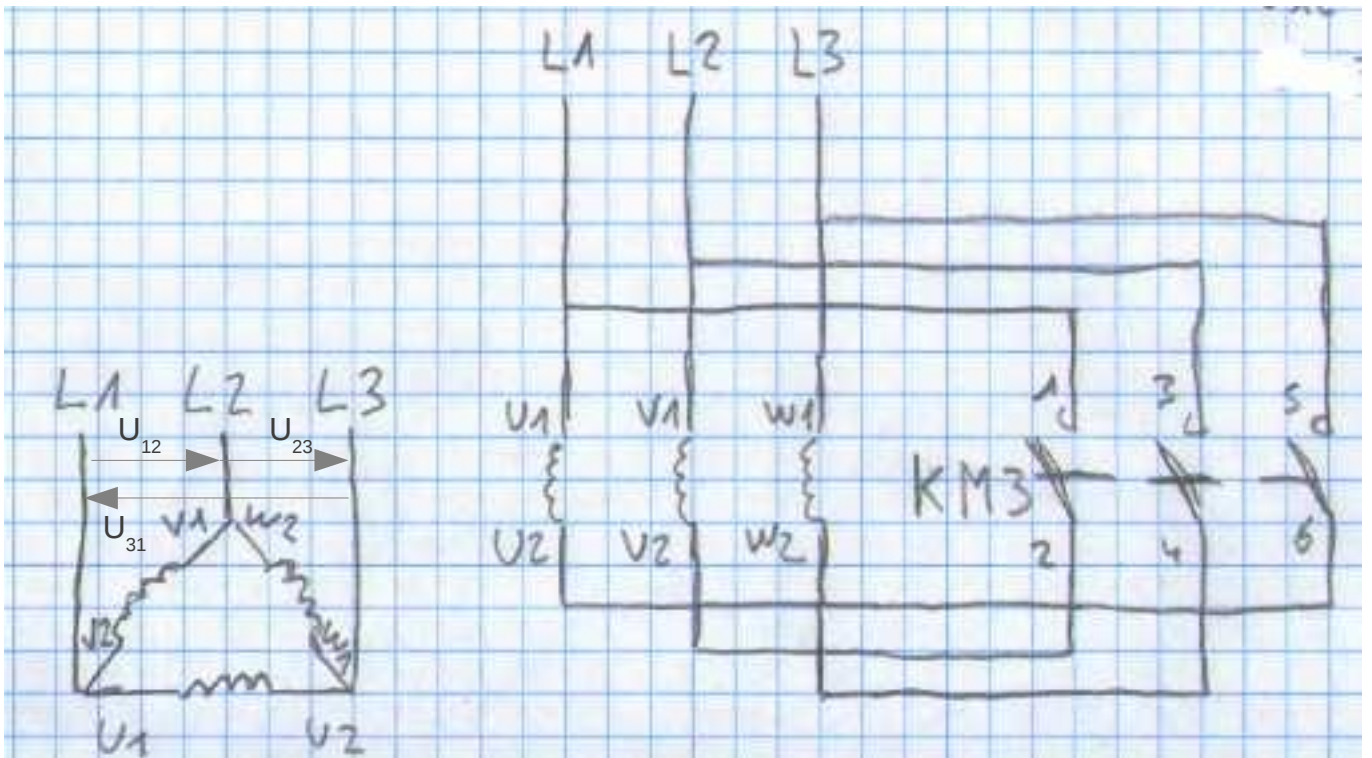 L1 L2 L3
L1 L2 L3
U12 U23
U31
V1 W2
V2 W1
U1 U2
U1 V1 W1
U2 V2 W2
1 3 5
KM3
2 4 6